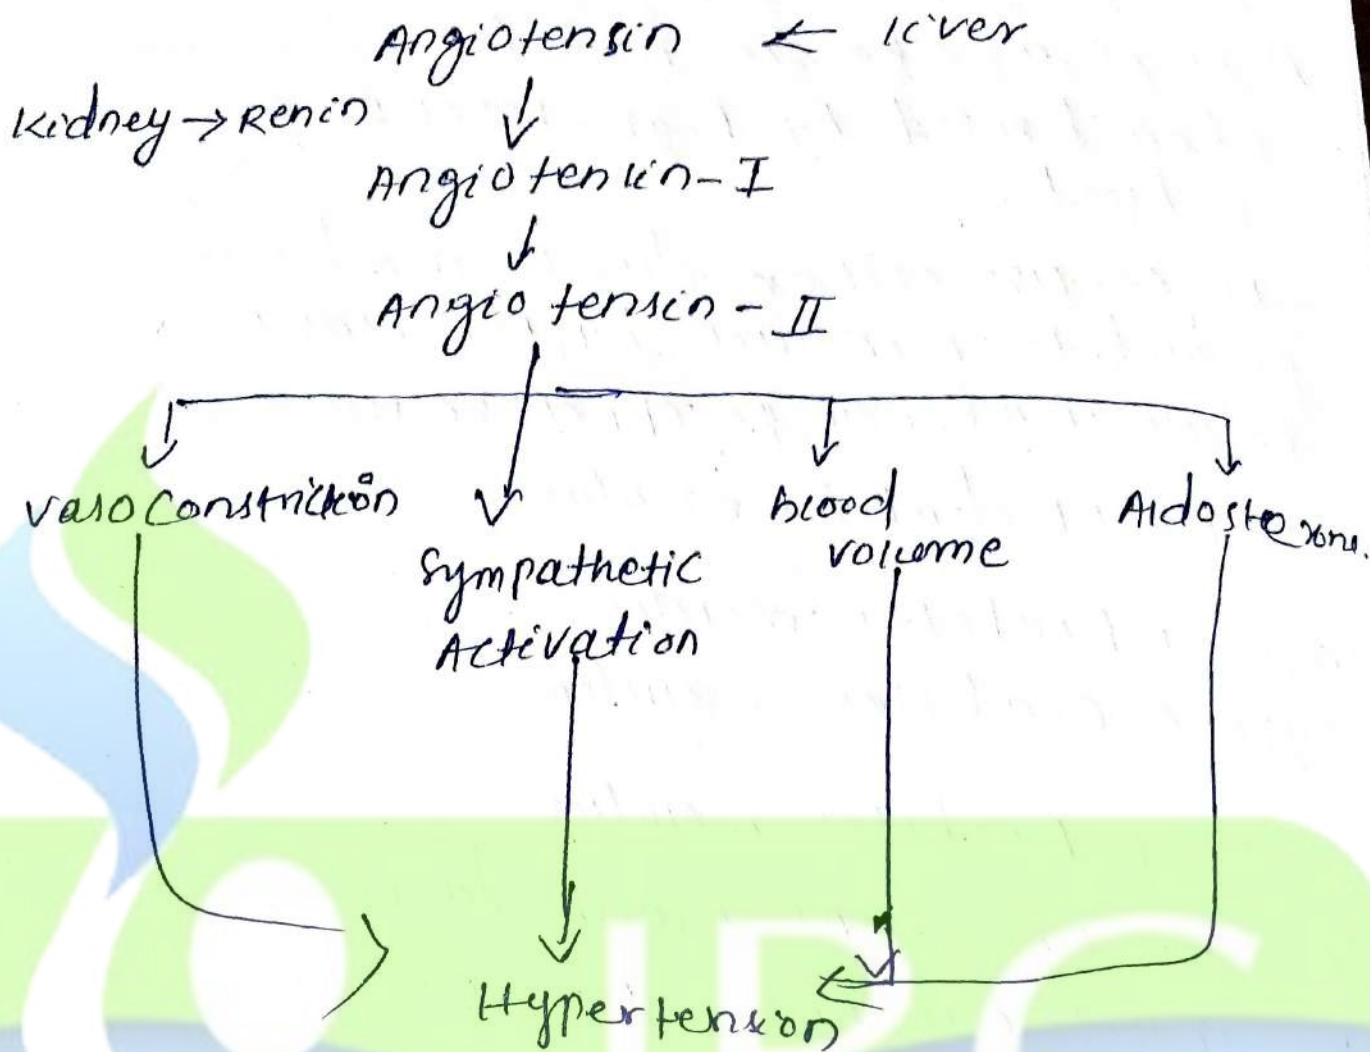 Angiotensin ← liver
Kidney → Renin
Angiotensin - I
Angiotensin - II
Vasoconstriction
Sympathetic
Activation
Blood
volume
Aldosterone.
Hypertension
IPC